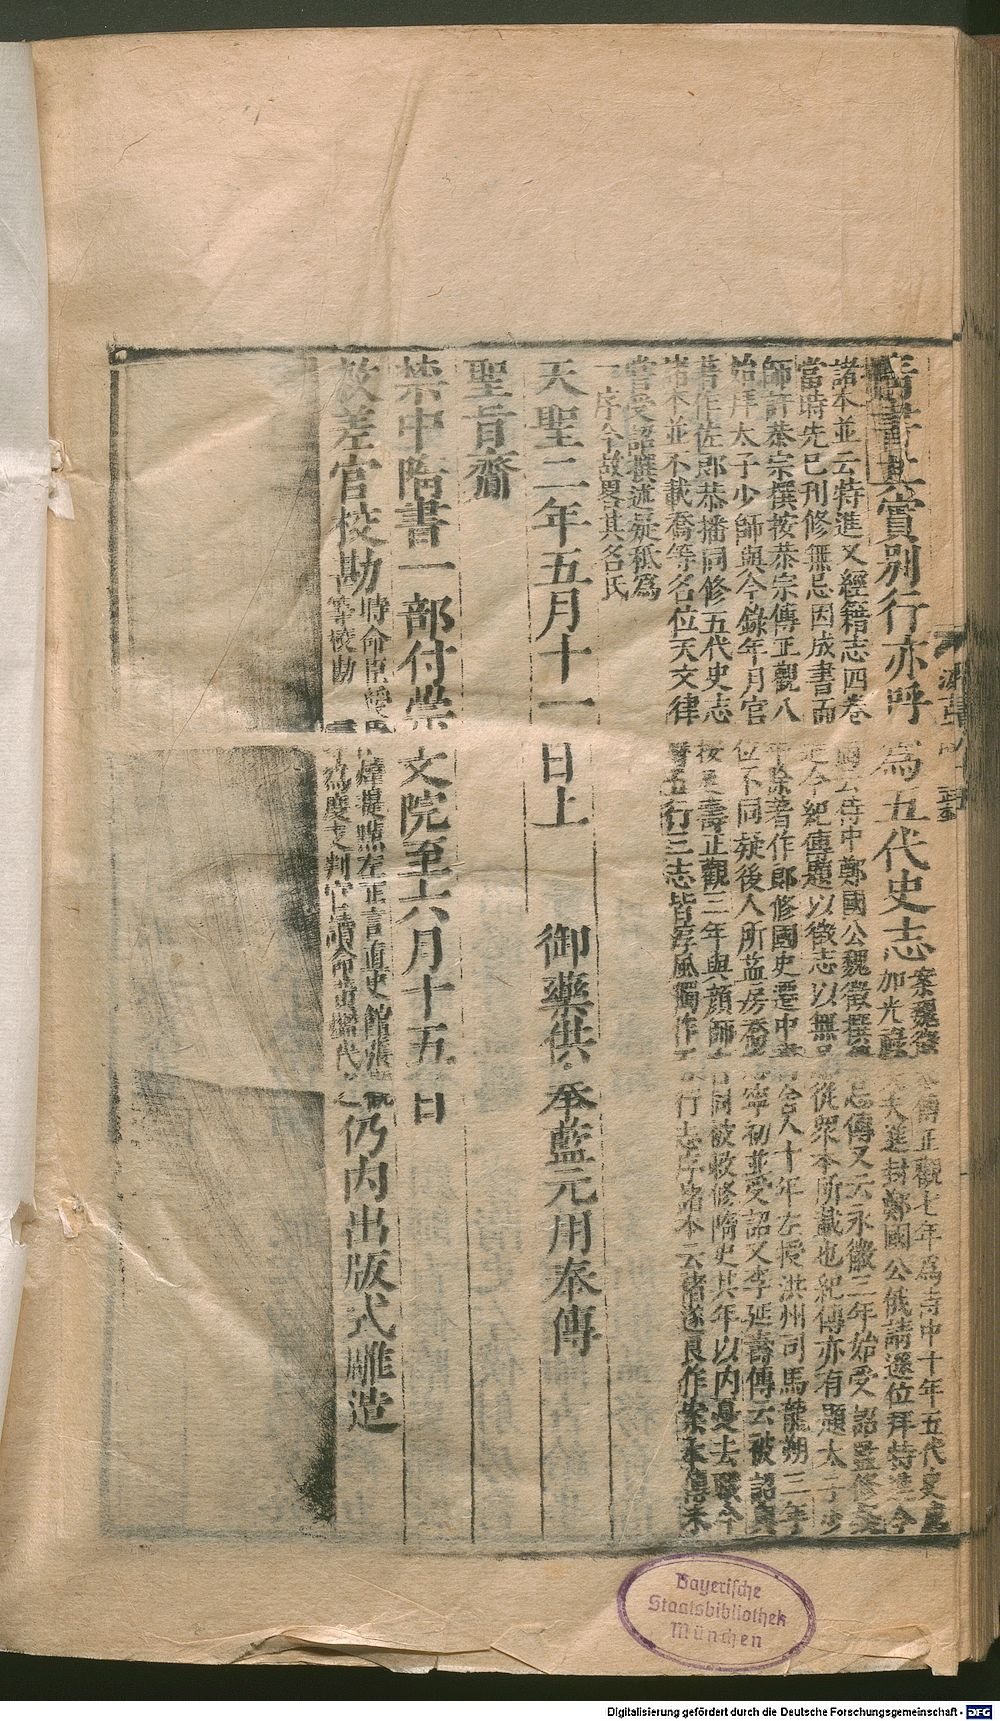 隋書其實別行亦呼為五代史志案魏徵本傳正觀七年為侍中十年五代史成
加光祿大夫進封鄭國公俄請遜位拜特進今
諸本並云特進又經籍志四卷國公侍中鄭國公魏徵撰無忌傳又云永徽三年始受詔監修疑
當時先已刊修無忌因成書而進今紀傳題以徵志以無忌從眾本所載也紀傳亦有題太子少
師許恭宗撰按恭宗傳正觀八年除著作郎修國史遷中書舍人十年左授洪州司馬龍朔三年
始拜太子少師與今錄年月官位不同疑後人所益房喬志寧初並受詔又李延壽傳云被詔與
著作佐郎恭播同修五代史志按延壽正觀三年與顏師古同被敕修隋史其年以內憂去職今
諸本並不載喬等名位天文律曆五行三志皆淳風獨作五行志序諸本云褚遂良作案本傳未
嘗受詔撰述疑秖為
一序今故畧其名氏
天聖二年五月十一日上 御藥供奉藍元用奉傳
聖旨齎
禁中隋書一部付崇文院至六月十五日
敕差官校勘時命臣綬臣煒提點左正言直史館張觀
等校勘 觀為度支判官續命黃鑑代之
仍內出版式雕造
Bayerische
Staatsbibliothek
München
Digitalisierung gefördert durch die Deutsche Forschungsgemeinschaft - DFG